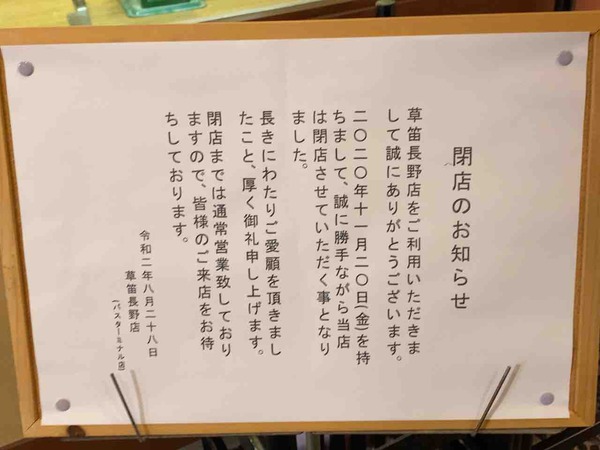 閉店のお知らせ
草笛長野店をご利用いただきま
して誠にありがとうございます。
二〇二〇年十一月二〇日(金)を持
ちまして、誠に勝手ながら当店
は閉店させていただく事となり
ました。
長きにわたりご愛顧を頂きまし
たこと、厚く御礼申し上げます。
閉店までは通常営業致しており
ますので、皆様のご来店をお待
ちしております。
令和二年八月二十八日
草笛長野店
(バスターミナル店)